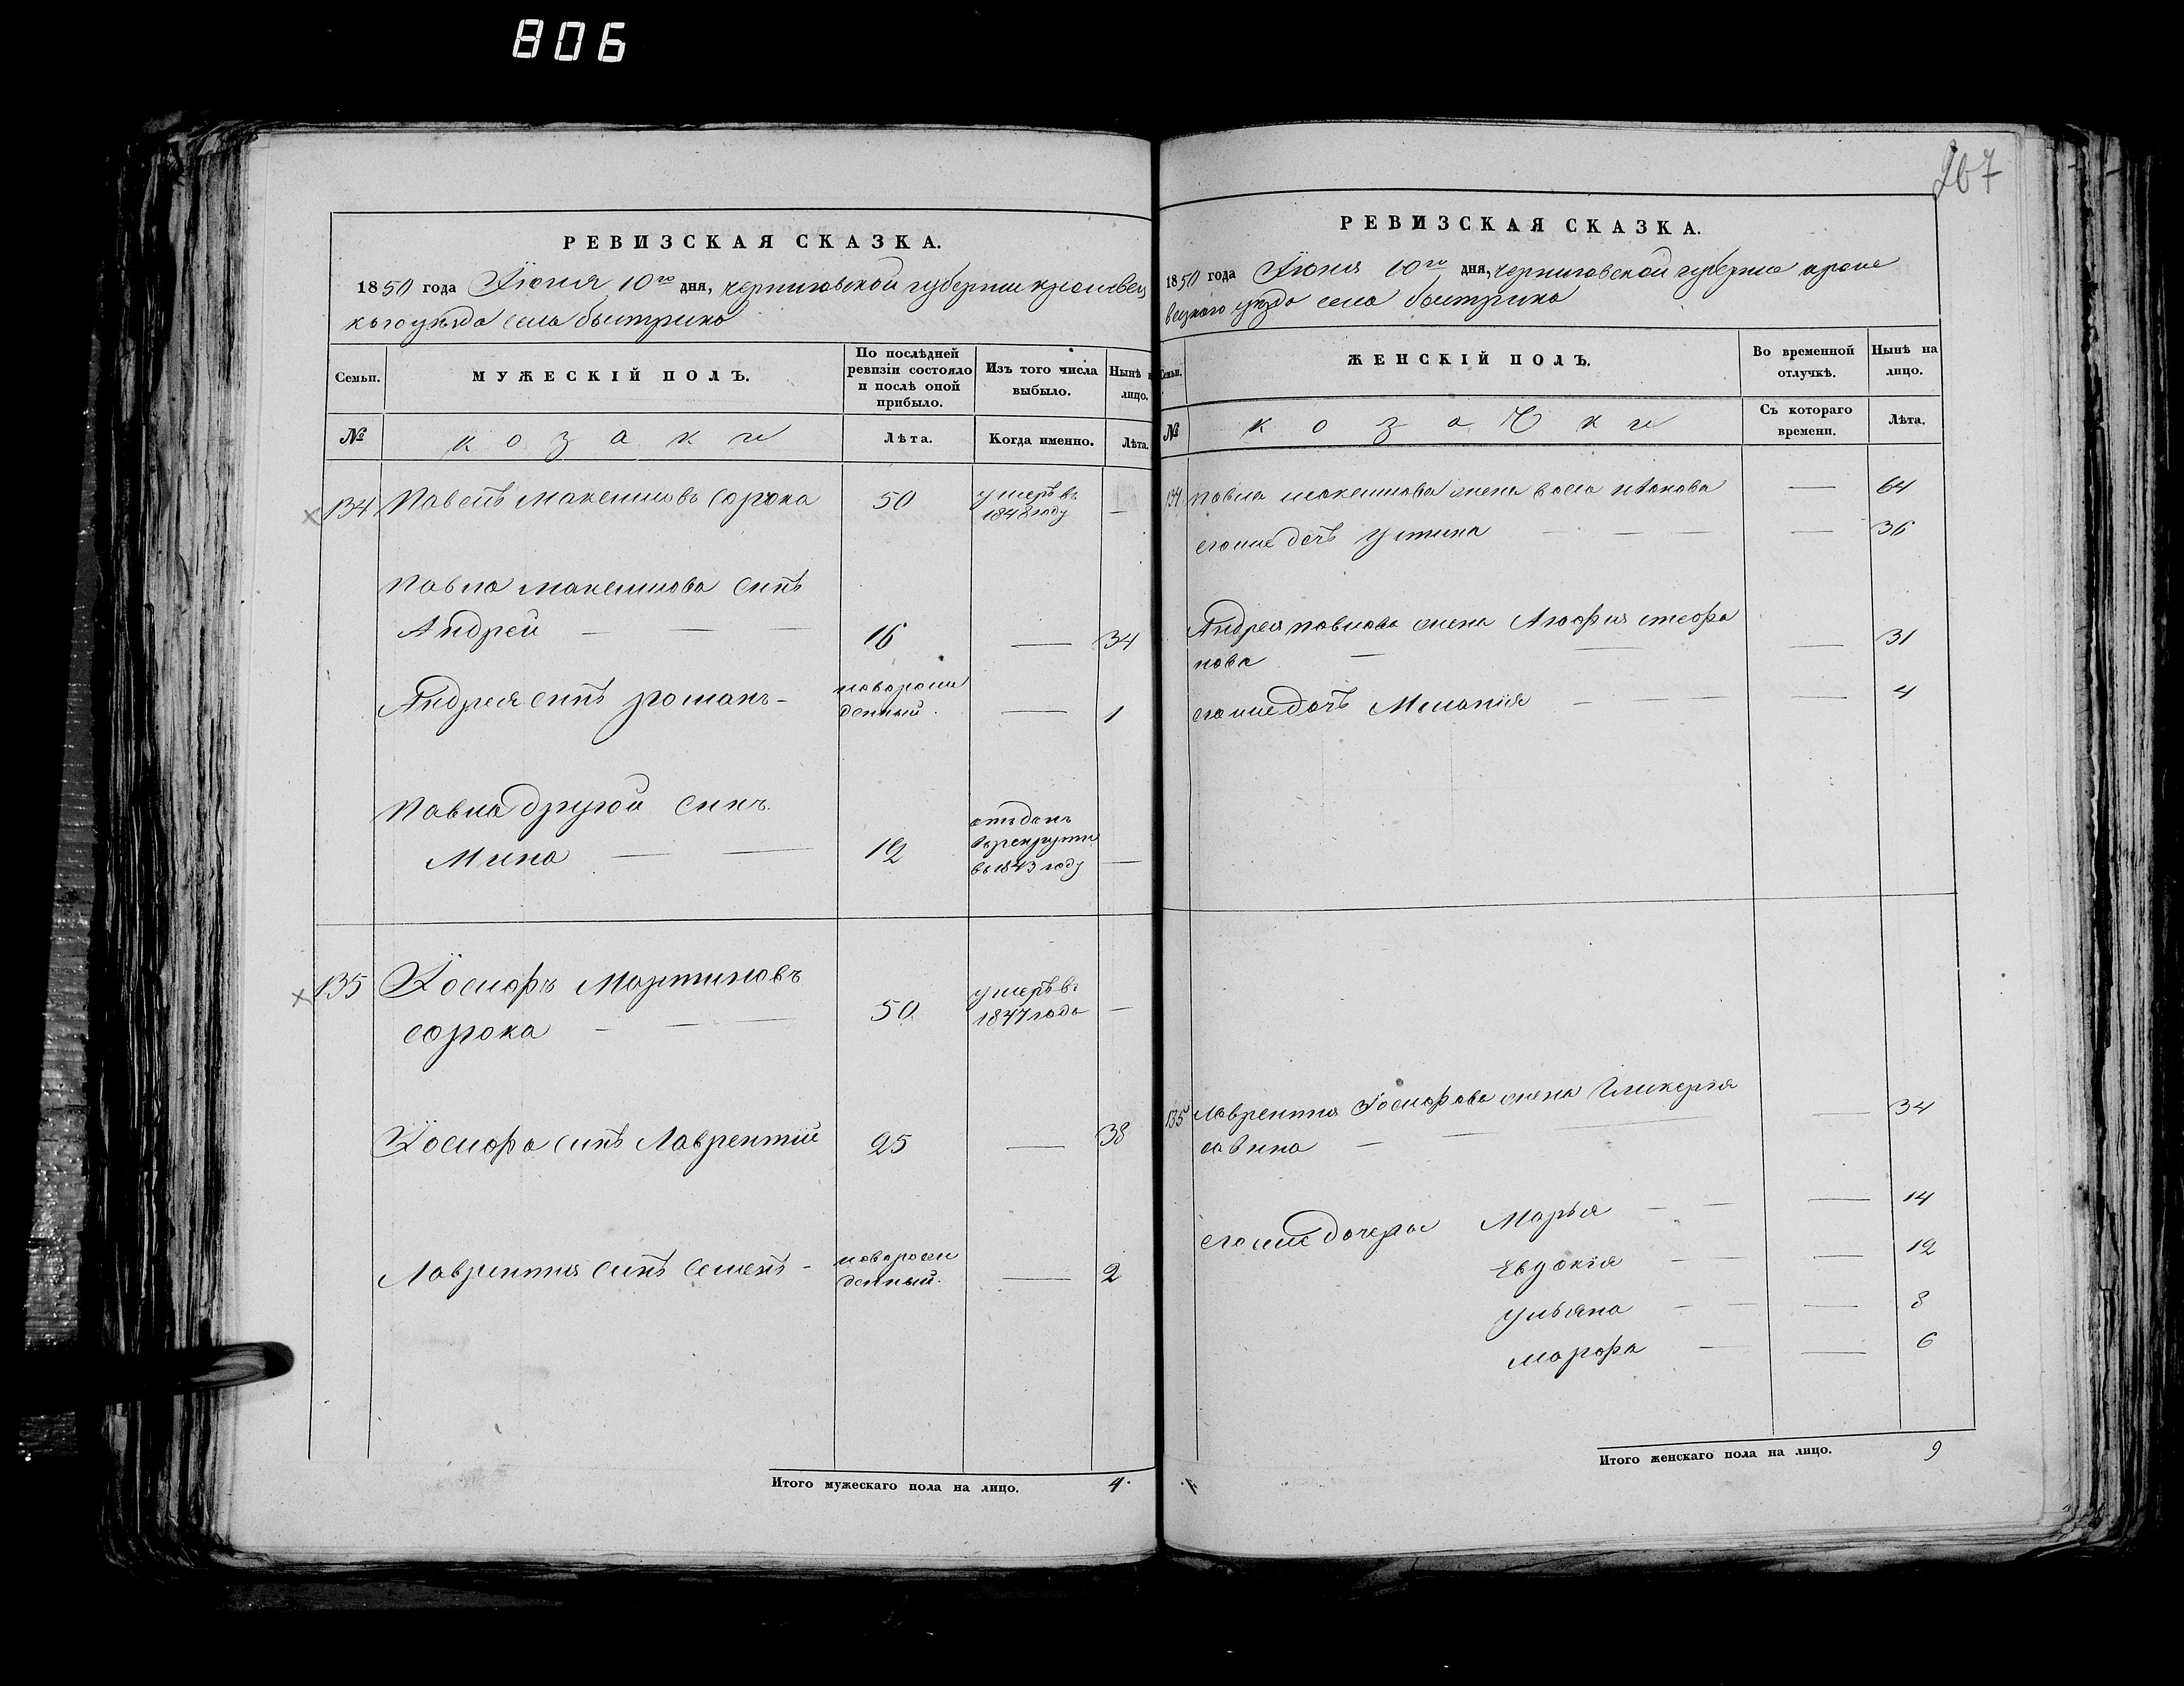 806
267
РЕВИЗСКАЯ СКАЗКА.
1850 года Іюня 10го дня, черниговской губернии кролевец
кого уезда села быстрика
Семьи. МУЖЕСКІЙ ПОЛЪ. По послѣдней ревизіи состояло и послѣ оной прибыло. Изъ того числа выбыло. Нынѣ на лицо.
№ козаки Лѣта. Когда именно. Лѣта.
134 Павелъ Максимовъ Сорока 50 умеръ въ 1848 году —
Павла Максимова синъ
Андрей — — — 16 — 34
Андрея синъ романъ - новорожденный. — 1
Павла другой синъ
Мина — — 12 отъданъ врекруты въ 1843 году —
135 Іосифъ Мартиновъ
сорока — — — 50 умеръ въ 1847 года —
Іосифа синъ Лаврентій 25 — 38
Лаврентия синъ Семенъ - новорожденный. — 2
Итого мужескаго пола на лицо. 4.
РЕВИЗСКАЯ СКАЗКА.
1850 года Іюня 10го дня, черниговской губернии кроле
вецкого уезда села быстрика
Семьи. ЖЕНСКІЙ ПОЛЪ. Во временной отлучкѣ. Нынѣ на лицо.
№ козачки Съ котораго времени. Лѣта.
134 павла максимова жена васса — 64
егоже дочъ устина — — — — 36
Андрея павлова жена стефа
нова — — — 31
егоже дочъ Меланія — — — 4
135 Лаврентия Іосифова жена Гликерія
савина — — — 34
егоже дочери Марья — — — 14
Евдокія — — — 12
ульяна — — — 8
марфа — — 6
Итого женскаго пола на лицо. 9